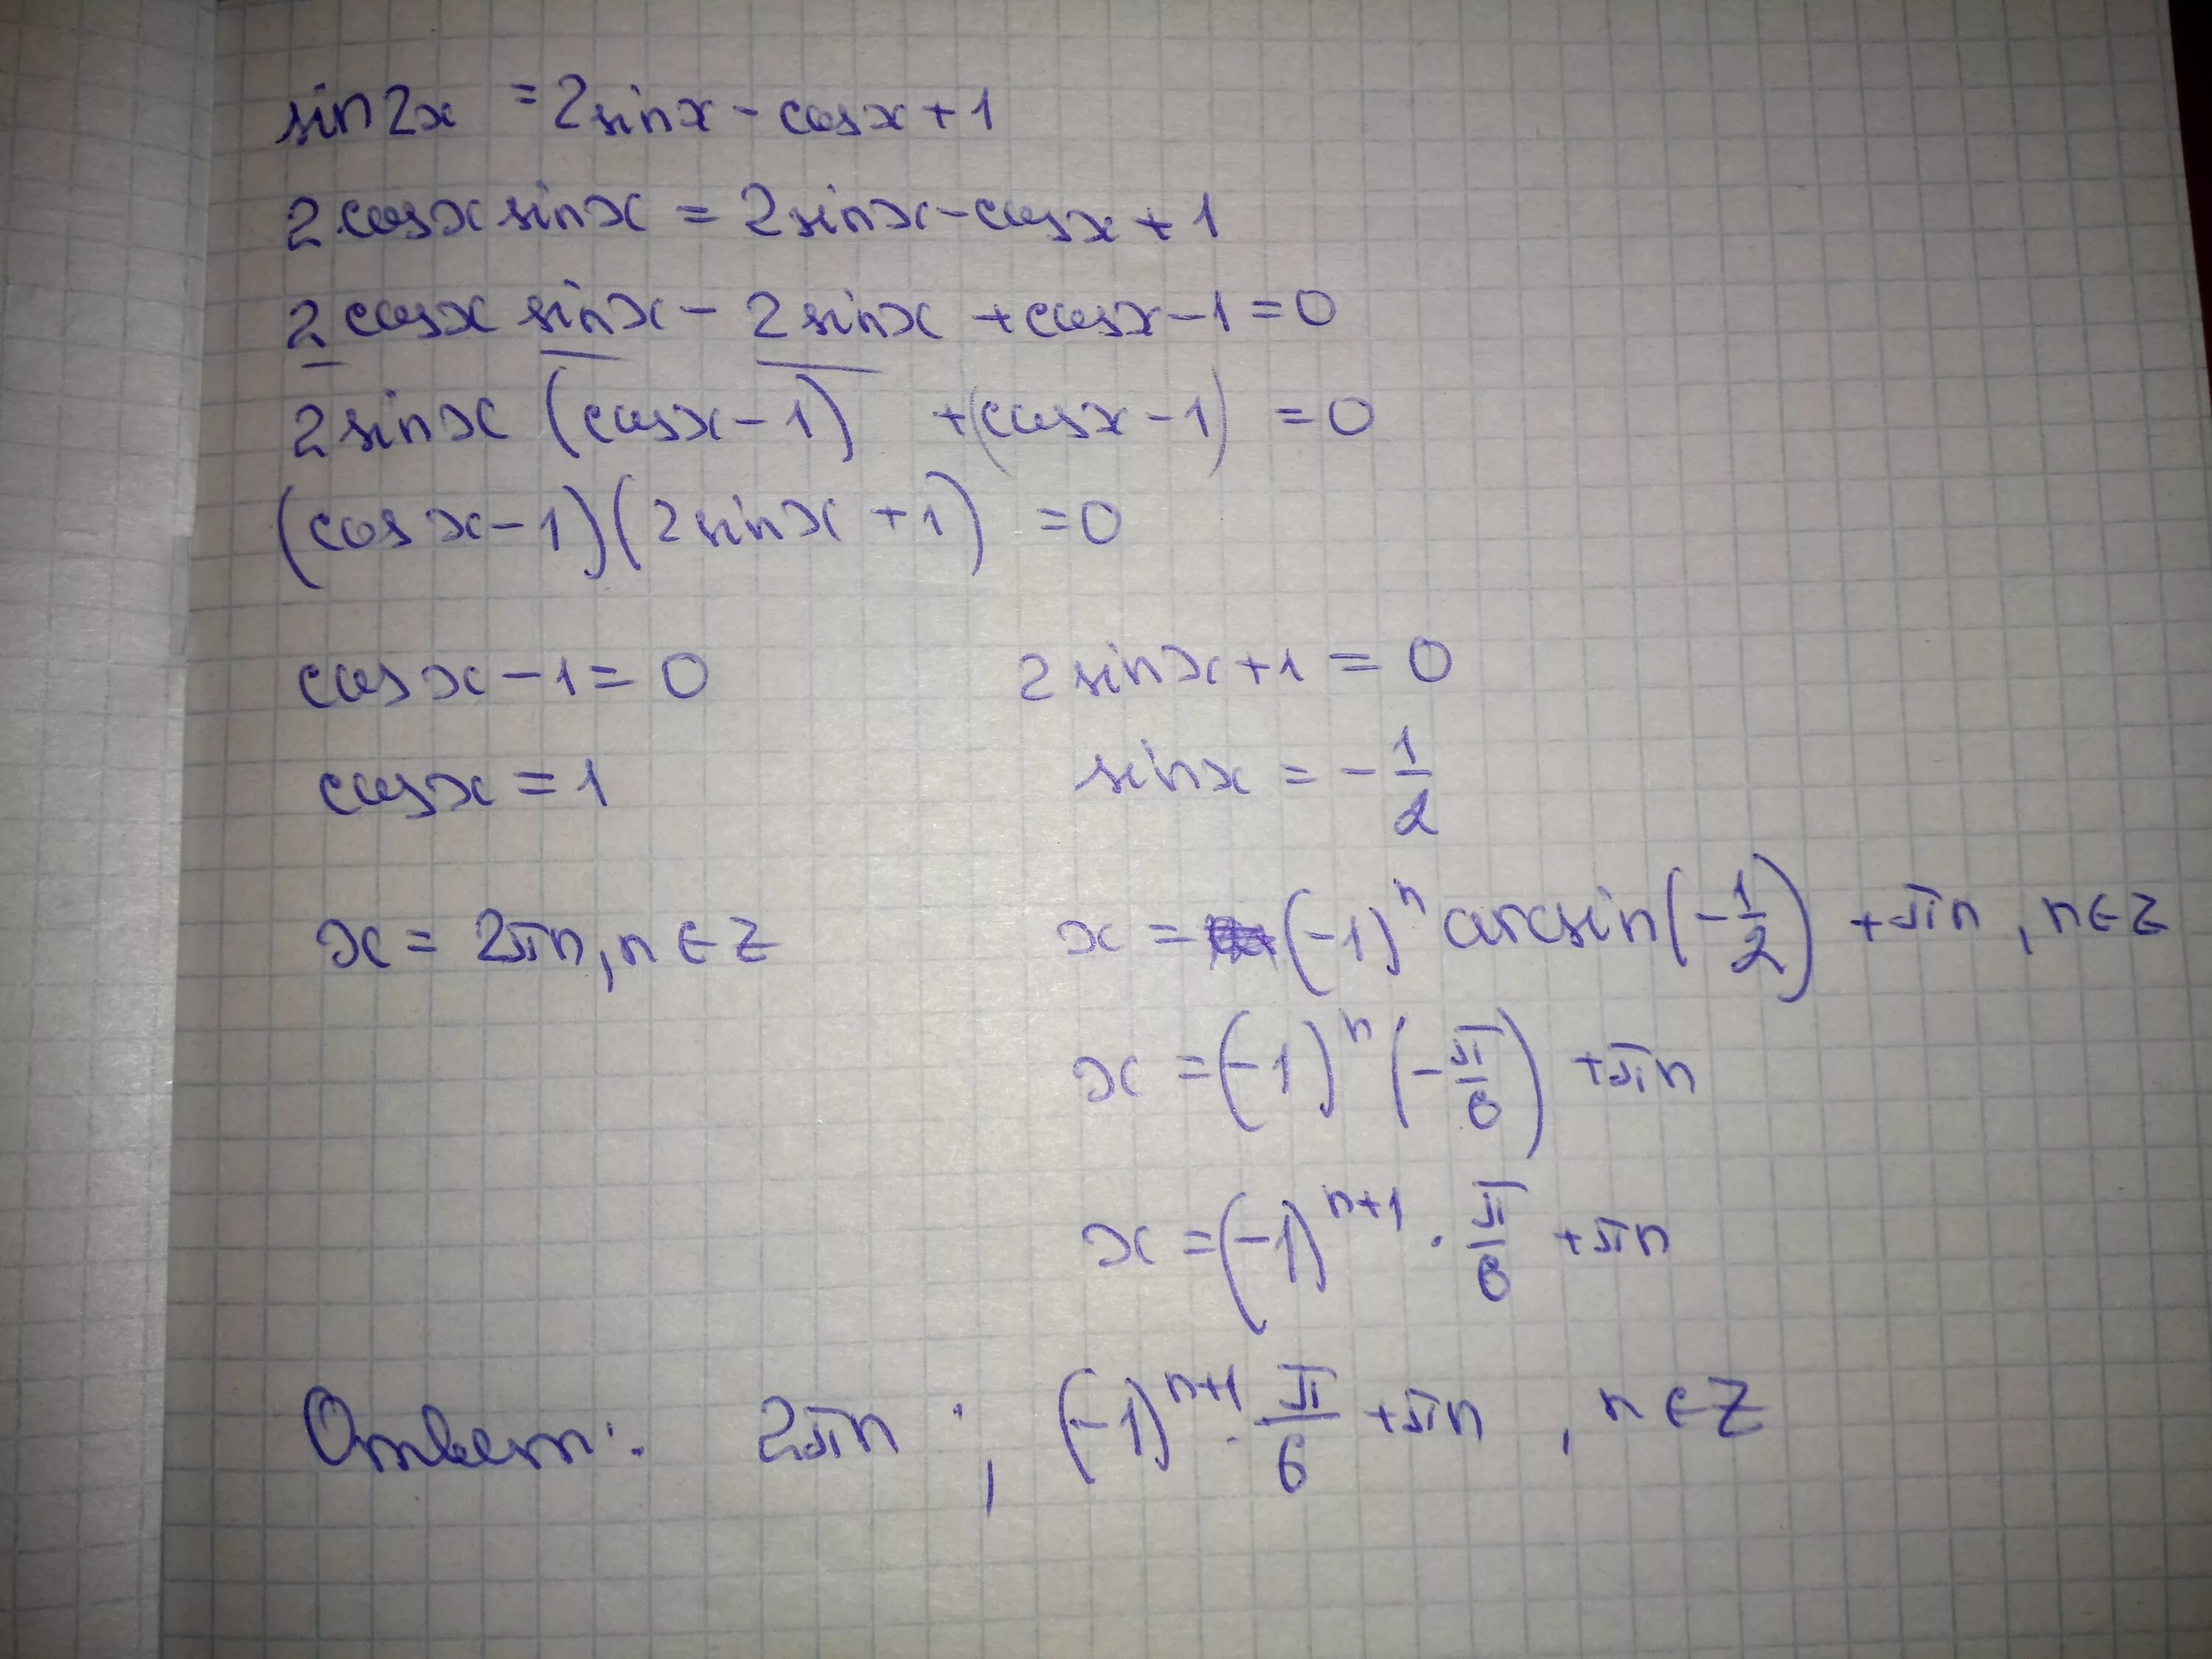 sin2x = 2sinx - cosx + 1
2cosx sinx = 2sinx - cosx + 1
2cosx sinx - 2sinx + cosx - 1 = 0
2sinx (cosx - 1) + (cosx - 1) = 0
(cosx - 1)(2sinx + 1) = 0
cosx - 1 = 0 2sinx + 1 = 0
cosx = 1 sinx = -1/2
x = 2πn, n ∈ Z x = (-1)^n arcsin(-1/2) + πn, n ∈ Z
x = (-1)^n (-π/6) + πn
x = (-1)^(n+1) · π/6 + πn
Ответ: 2πn ; (-1)^(n+1) · π/6 + πn, n ∈ Z